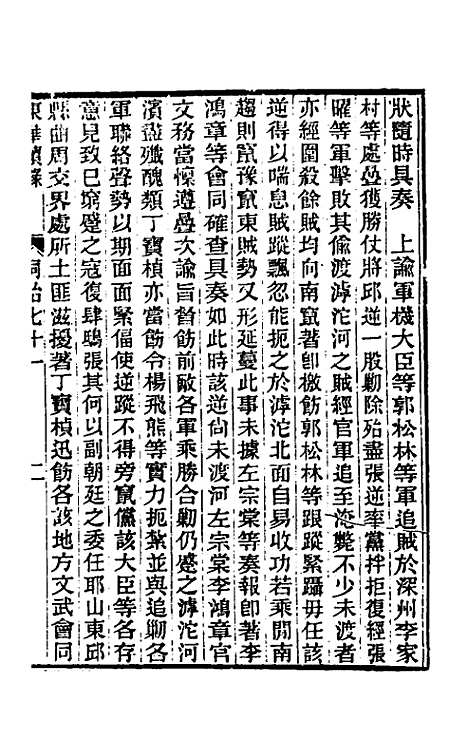 狀隨時具奏　上諭軍機大臣等郭松林等軍追賊於深州李家
村等處疊獲勝仗將邱逆一股勦除殆盡張逆率黨拌拒復經張
曜等軍擊敗其偷渡滹沱河之賊經官軍追至淹斃不少未渡者
亦經圍殺餘賊均向南竄著卽檄飭郭松林等跟蹤緊躡毋任該
逆得以喘息賊蹤飄忽能扼之於滹沱北面自易收功若乘閒南
趨則竄豫竄東賊勢又形延蔓此事未據左宗棠等奏報卽著李
鴻章等會同確查具奏如此時該逆尙未渡河左宗棠李鴻章官
文務當懍遵疊次諭旨督飭前敵各軍乘勝合勦仍蹙之滹沱河
濱盡殲醜類丁寶楨亦當飭令楊飛熊等實力扼紮並與追勦各
軍聯絡聲勢以期面面緊偪使逆蹤不得旁竄儻該大臣等各存
意見致已窮蹙之寇復肆鴟張其何以副朝廷之委任耶山東邱
縣曲周交界處所土匪滋擾著丁寶楨迅飭各該地方文武會同
東華續錄　同治七十一　二